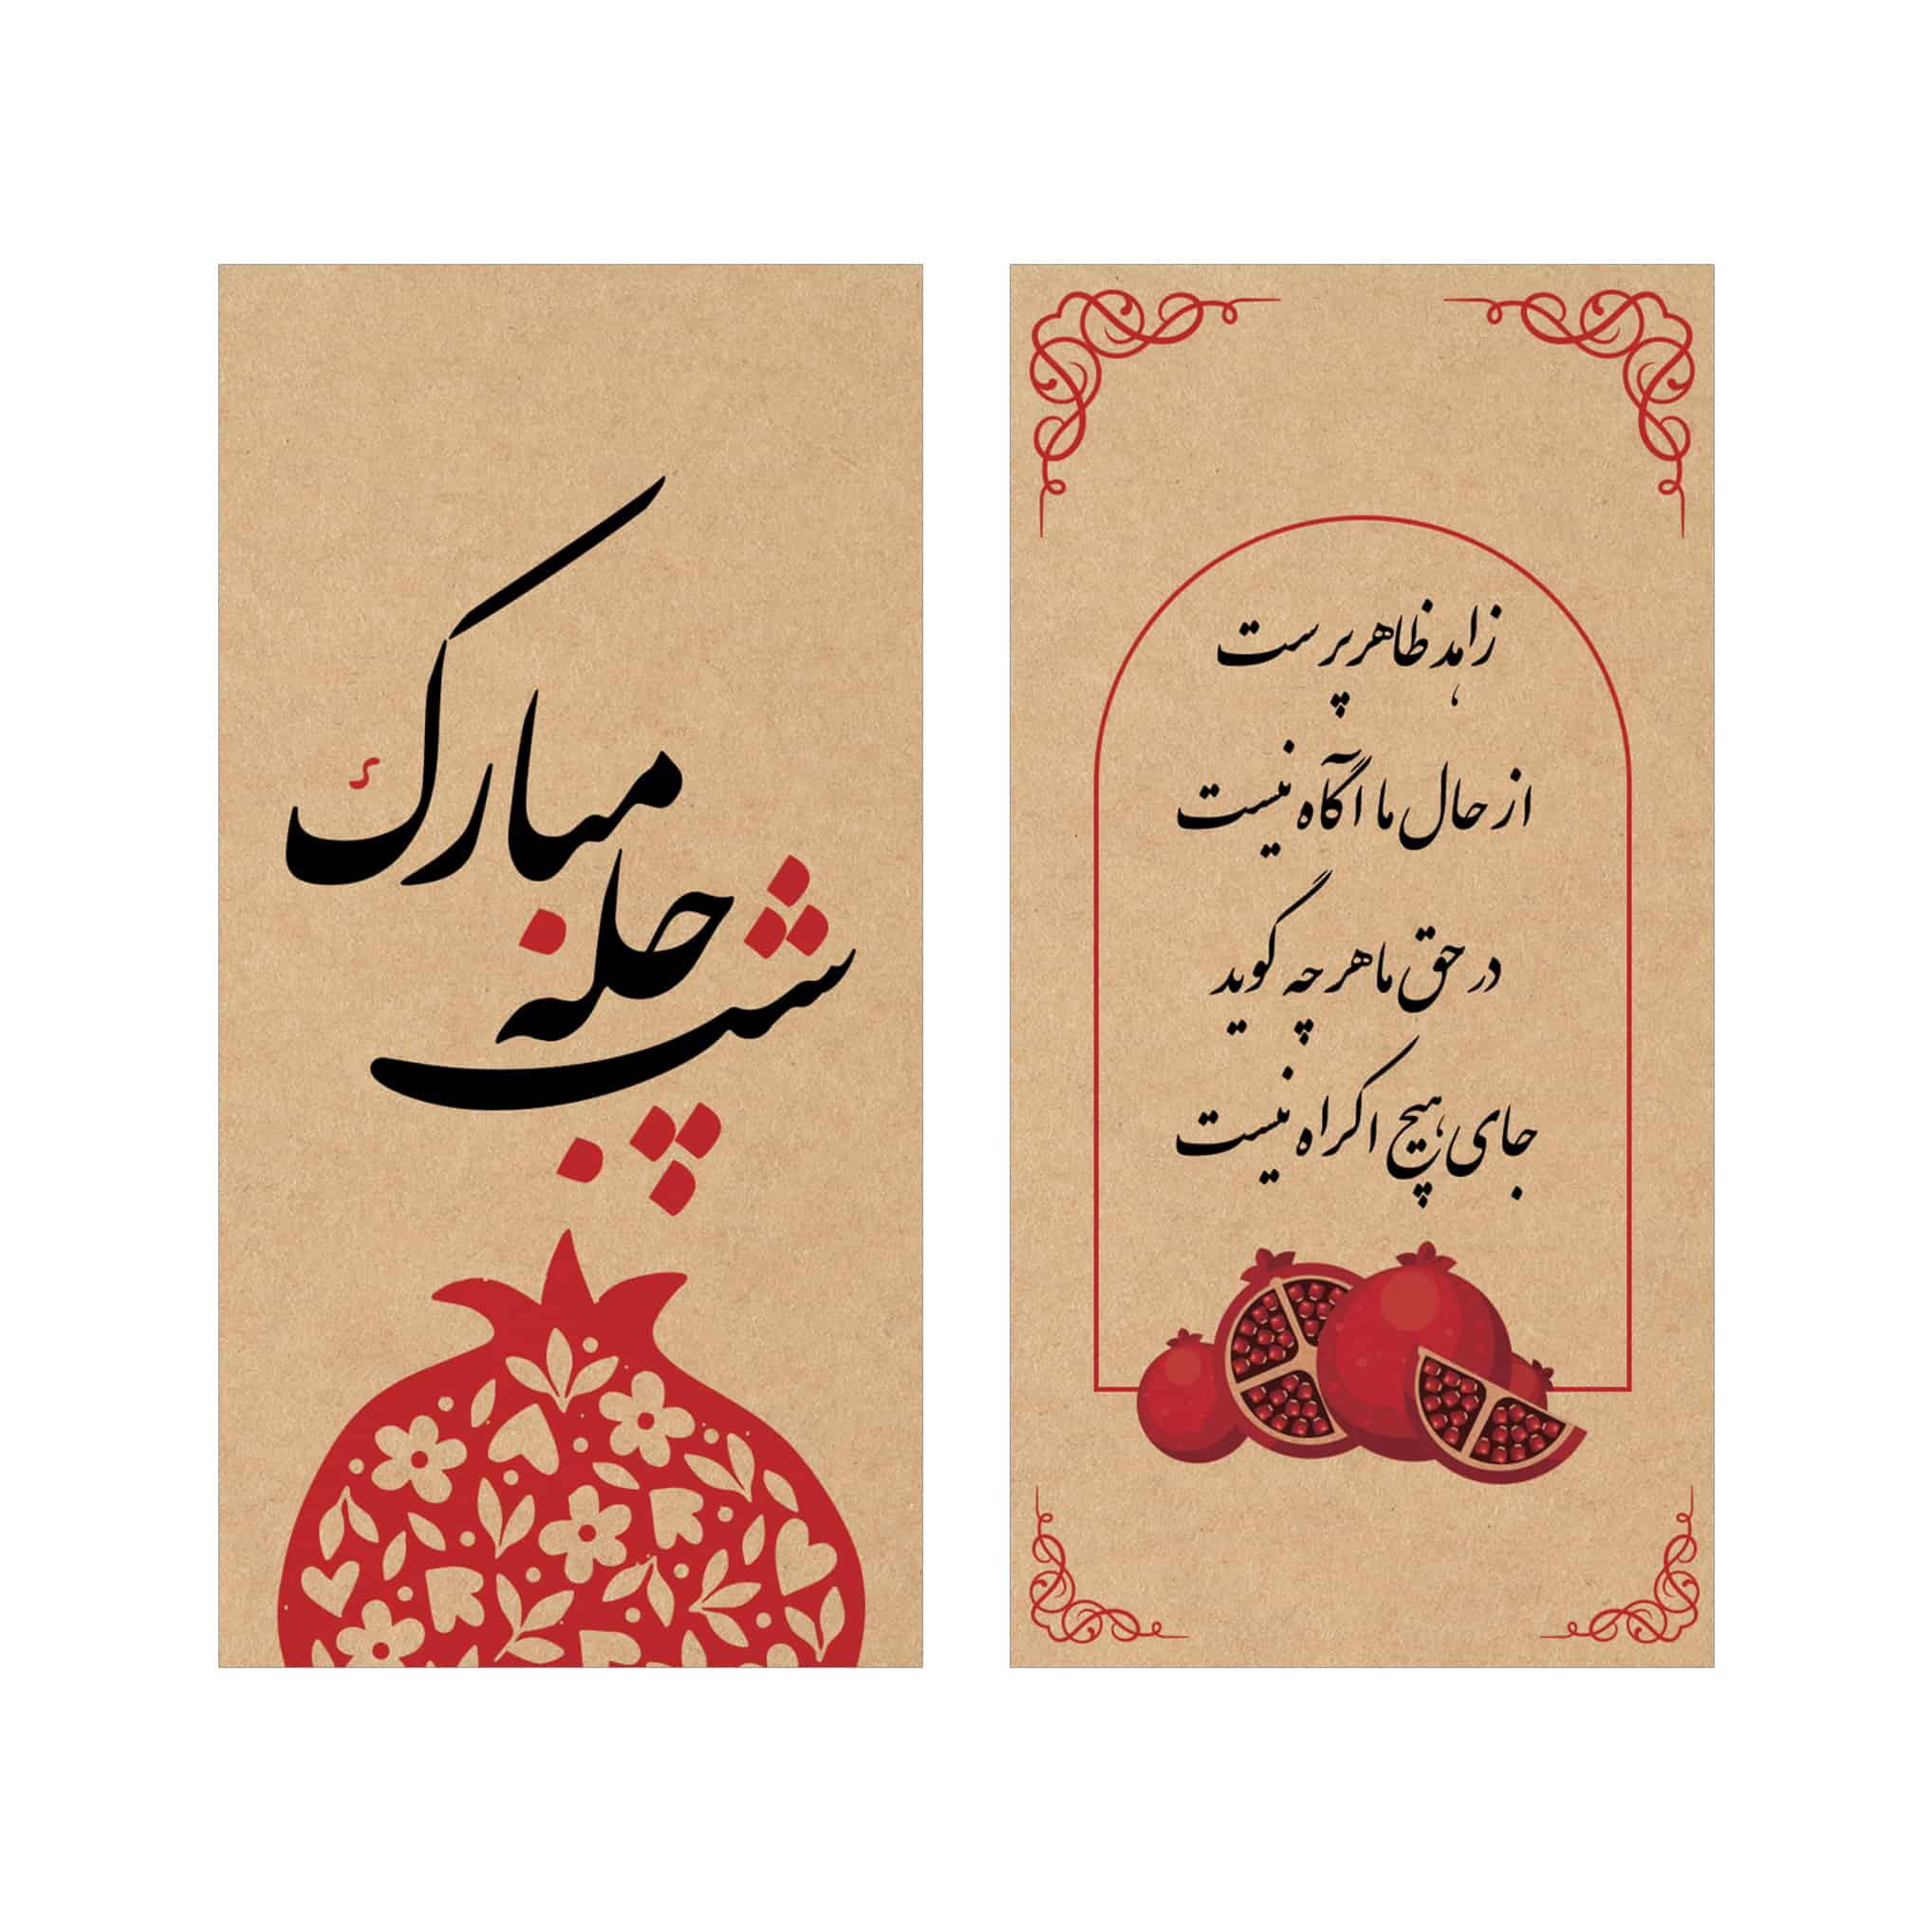 شب چله مبارک
زاهد ظاهرپرست
از حال ما آگاه نیست
در حق ما هرچه گوید
جای هیچ اکراه نیست